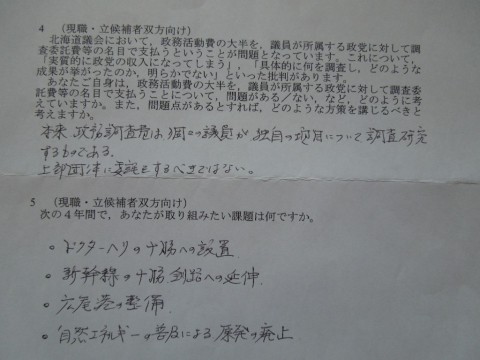 4　(現職・立候補者双方向け)
北海道議会において，政務活動費の大半を，議員が所属する政党に対して調
査委託費等の名目で支払うということが問題となっています。これについて，
「実質的に政党の収入になってしまう」，「具体的に何を調査し，どのような
成果が挙がったのか，明らかでない」といった批判があります。
あなたご自身は，政務活動費の大半を，議員が所属する政党に対して調査委
託費等の名目で支払うことについて，問題がある／ない，など，どのように考
えていますか。また，問題点があるとすれば，どのような方策を講じるべきと
考えますか。
本来、政務調査費は個々の議員が独自の項目について調査研究
するものである。
上部団体に委託をするべきではない。
5　(現職・立候補者双方向け)
次の4年間で，あなたが取り組みたい課題は何ですか。
○ ドクターヘリの十勝への設置
○ 新幹線の十勝釧路への延伸
○ 広尾港の整備
○ 自然エネルギーの普及による原発の廃止